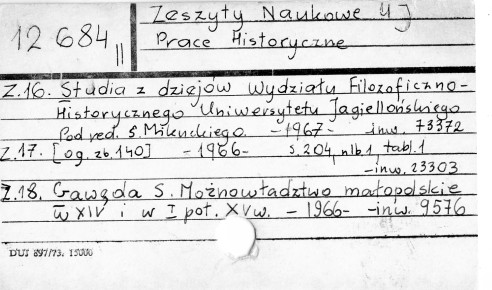 Zeszyty Naukowe UJ
12 684 || Prace Historyczne
Z.16. Studia z dziejów Wydziału Filozoficzno-
Historycznego Uniwersytetu Jagiellońskiego
Pod red. S. Mikuckiego -1967- inw. 73372
Z.17. [og. zb. 140] -1966- s. 204, nlb 1 tabl. 1
-inw. 23303
Z.18. Gawęda S. Możnowładztwo małopolskie
w XIV i w I poł. XV w. -1966- -inw. 9576
DUJ 897/73. 15000